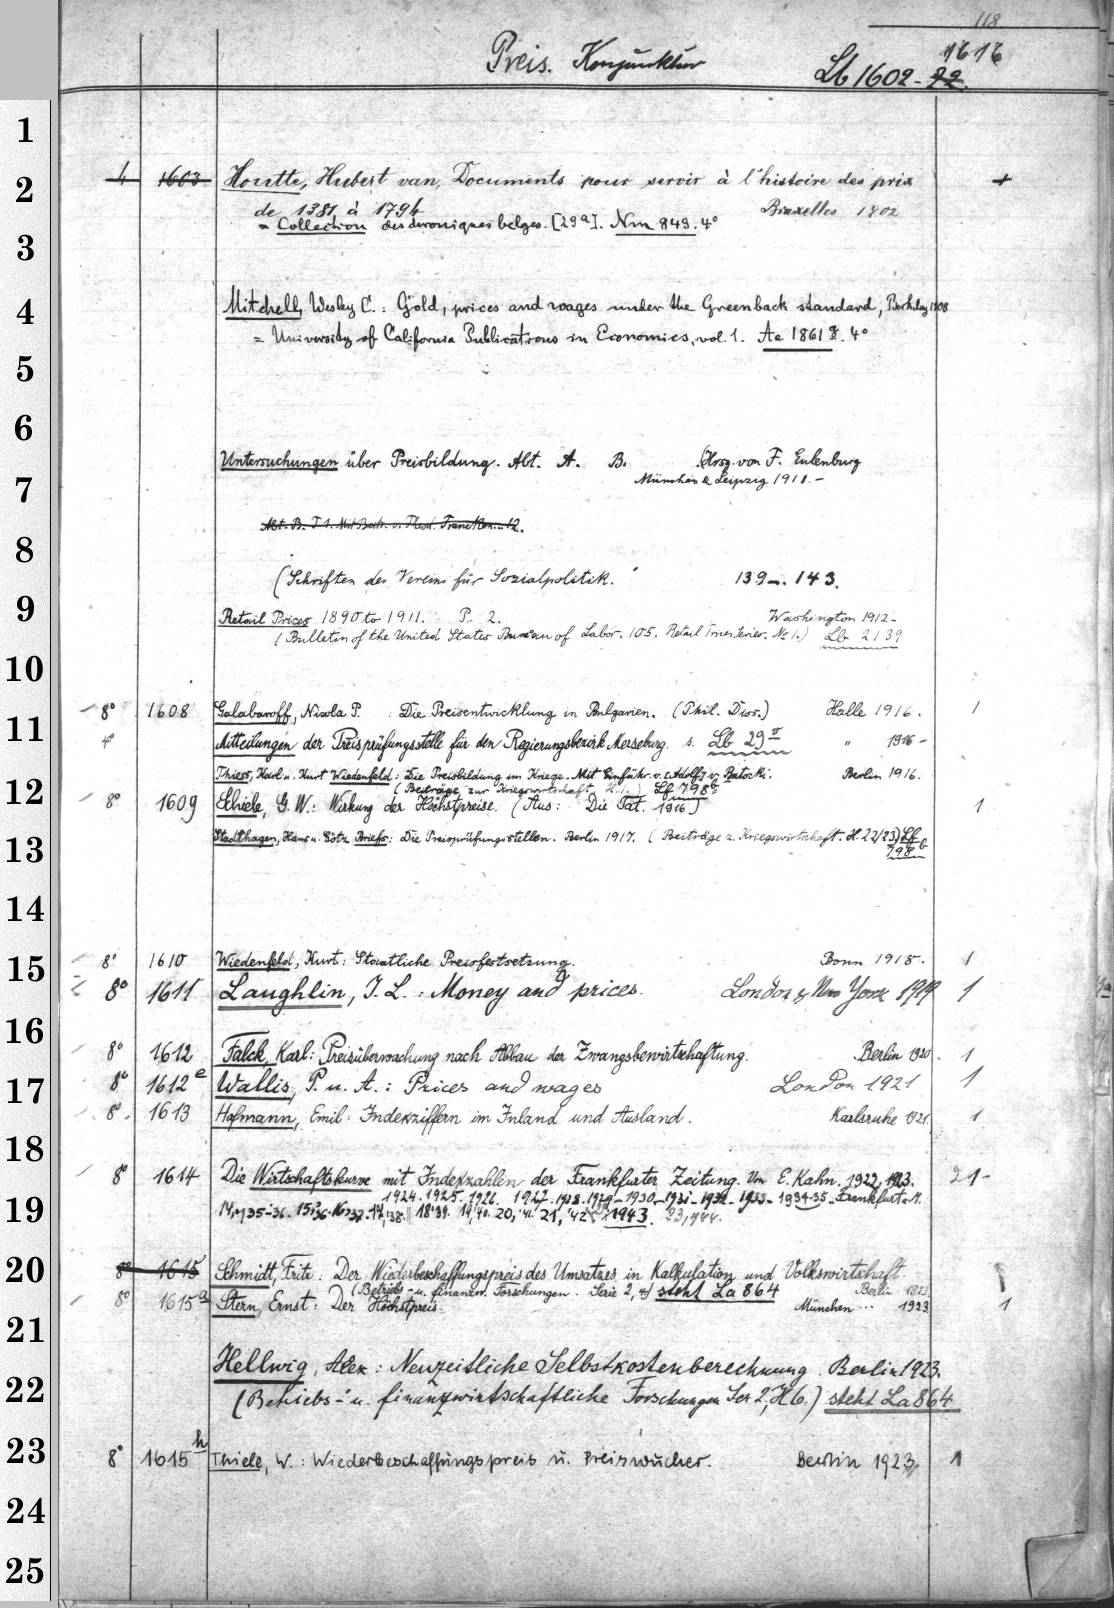 118
Preis. Konjunktur
1616
Lb 1602-22.
1
2
3
4
5
6
7
8
9
10
11
12
13
14
15
16
17
18
19
20
21
22
23
24
25
4 1603 Houtte, Hubert van, Documents pour servir à l'histoire des prix +
de 1381 à 1794 Bruxelles 1902
= Collection des chroniques belges. [29a]. Nm 849. 4°
Mitchell, Wesley C.: Gold, prices and wages under the Greenback standard, Berkeley 1908
= University of California Publications in Economics, vol. 1. Ae 1861 g. 4°
Untersuchungen über Preisbildung. Abt. A. B. Hrsg. von F. Eulenburg
München & Leipzig 1911.-
Abt. B. T 1. Mit Beitr. v. Theod. Francken... 12.
(Schriften des Vereins für Sozialpolitik. 139-. 143.
Retail Prices 1890 to 1911. P. 2. Washington 1912-
(Bulletin of the United States Bureau of Labor. 105. Retail Series. No 1.) Lb 2139
8° 1608 Galabaroff, Nicola P. : Die Preisentwicklung in Bulgarien. (Phil. Diss.) Halle 1916. 1
4° Mitteilungen der Preisprüfungsstelle für den Regierungsbezirk Merseburg. s. Lb 29 II " 1916 -
Thiess, Karl u. Kurt Wiedenfeld: Die Preisbildung im Kriege. Mit Einführ. v. [Adolf] v. Batocki. Berlin 1916.
(Beiträge zur Kriegswirtschaft. H. 1.) Lf 798 b
8° 1609 Schiele, G. W.: Wirkung der Höchstpreise. (Aus: Die Tat. 1916) 1
Stadthagen, Hans u. Götz Briefs: Die Preisprüfungsstellen. Berlin 1917. (Beiträge z. Kriegswirtschaft. H. 22/23) Lf
798 b
8° 1610 Wiedenfeld, Kurt: Staatliche Preisfestsetzung. Bonn 1918. 1
8° 1611 Laughlin, J. L.: Money and prices. London & New York 1919 1
8° 1612 Falck, Karl: Preisüberwachung nach Abbau der Zwangsbewirtschaftung. Berlin 1920. 1
8° 1612 e Wallis, P. u. A.: Prices and wages London 1921 1
8°. 1613 Hofmann, Emil: Indexziffern im Inland und Ausland. Karlsruhe 1921. 1
8° 1614 Die Wirtschaftskurve mit Indexzahlen der Frankfurter Zeitung. Von E. Kahn. 1922, 1923. 21-
1924. 1925. 1926. 1927. 1928. 1929 - 1930 - 1931 - 1932 - 1933 - 1934-35 - Frankfurt a. M.
14, 1935-36. 15, 36. 16, 37. 17, '38. 18'39. 19, '40. 20, '41. 21, '42 1943. 23, 1944.
8° 1615 Schmidt, Fritz: Der Wiederbeschaffungspreis des Umsatzes in Kalkulation und Volkswirtschaft.
(Betriebs- u. finanzw. Forschungen. Serie 2, ) steht La 864 Berlin 1923.
8° 1615 a Stern, Ernst: Der Höchstpreis. München ... 1923. 1
Hellwig, Alex: Neuzeitliche Selbstkostenberechnung. Berlin 1923.
(Betriebs- u. finanzwirtschaftliche Forschungen Ser 2, H 6.) steht La 864
8° 1615 h Thiele, W.: Wiederbeschaffungspreis u. Preiswucher. Berlin 1923. 1